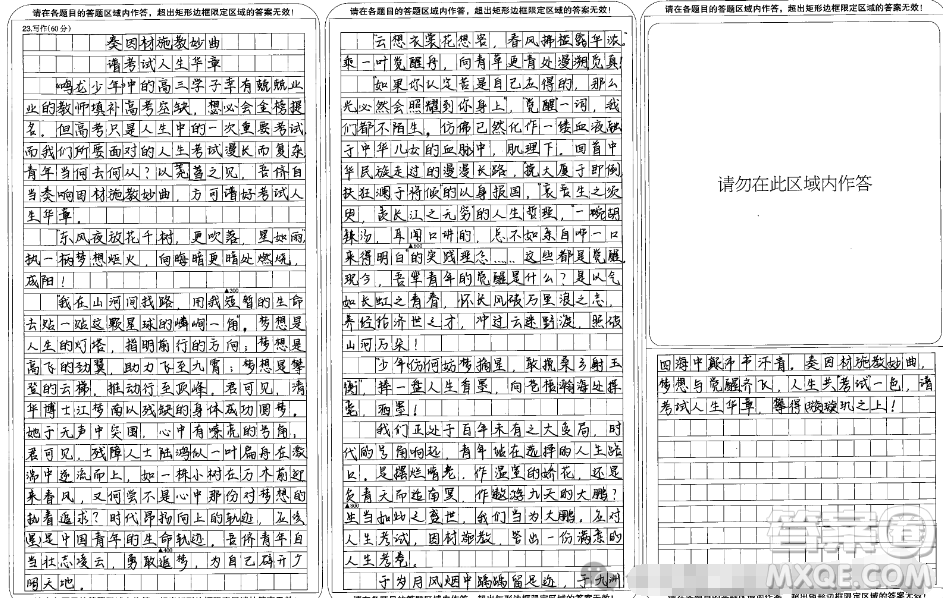 请在各题目的答题区域内作答，超出矩形边框限定区域的答案无效！
23.写作(60分)
奏因材施教妙曲
谱考试人生华章
《鸣龙少年》中的高三学子幸有兢兢业
业的教师填补高考空缺，想必会金榜提
名，但高考只是人生中的一次重要考试，
而我们所要面对的人生考试漫长而复杂
青年当何去何从？以之见，吾侪自
当奏响因材施教妙曲，方可谱好考试人
生华章。
“东风夜放花千树，更吹落，星如雨”
执一柄梦想烟火，向晦暗更暗处燃烧，
成阳！
“我在山河间找路，用我短暂的生命
去贴一贴这颗星球的嶙峋一角”。梦想是
人生的灯塔，指明前行的方向；梦想是
高飞的劲翼，助力飞至九霄；梦想是攀
登的云梯，推动行至顶峰。君可见，清
华博士江梦南以残缺的身体成功圆梦。
她于无声中突围，心中有嘹亮的号角。
君可见，残障人士陆鸿似一叶扁舟在激
湍中逆流而上，如一株小树在万木前迎
来春风，又何尝不是心中那份对梦想的
执着追求？时代昂扬向上的轨迹，应
是中国青年的生命轨迹。吾侪青年自
当壮志凌云，勇敢追梦，为自己辟开
明天地。
请在各题目的答题区域内作答，超出矩形边框限定区域的答案无效！
云想衣裳花想容，春风拂槛露华浓。
乘一叶觉醒舟，向青草更青处漫溯觅真！
“如果你认定苦是自己应得的，那么
光必然会照耀到你身上”，觉醒一词，我
们都不陌生。仿佛已然化作一缕血液融
于中华儿女的血脉中，肌理下。回首中
华民族走过的漫漫长路，“挽大厦于即倒，
扶狂澜于将倾”的以身报国，“哀吾生之须
臾，羡长江之无穷”的人生哲理，“一碗胡
辣汤，耳闻口讲的，总不如亲自呷一口
来得明白”的实践理念……这些都是觉醒
现今，吾辈青年的觉醒是什么？是以气
如长虹之青春，怀长风破万里浪之志，
养经纶济世之才，冲过云迷野渡，照破
山河万朵！
少年仿何妨梦摘星，敢挽桑弓射玉
衡”，捧一盘人生青墨，向苍茫瀚海处挥
毫，洒墨！
我们正处于百年未有之大变局，时
代的号角响起，青年站在选择的人生路
口。是摆烂啃老，作温室的娇花，还是
负青天而造南冥，作遨游九天的大鹏？
生当如此之盛世，我们当为大鹏，应对
人生考试，因材施教，答出一份满意的
人生考卷。
于岁月风烟中踽踽留足迹，于九洲
请在各题目的答题区域内作答，超出矩形边框限定区域的答案无效！
请勿在此区域内作答
四海中，奏因材施教妙曲，
梦想与觉醒齐飞，人生共考试一色，谱
考试人生华章，璇玑之上！
答案圈
MXQE.COM